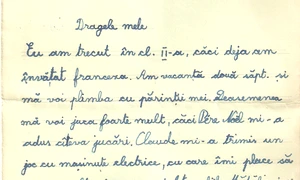 Dragele mele
Eu am trecut în cl. II-a, căci deja am
învățat franceza. Am vacanță două săpt. și
mă voi plimba cu părinții mei. Deasemenea
mă voi juca foarte mult, căci Père Noël mi-a
adus cîteva jucări. Claude mi-a trimis un
joc cu mașinuțe electrice, cu care îmi place să